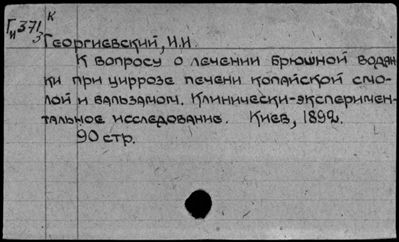 К
Ги 371
3
Георгиевский, И.И.
К вопросу о лечении брюшной водян
ки при циррозе печени копайской смо-
лой и вальзамом. Клинически-эксперимен-
тальное исследование. Киев, 1892.
90 стр.